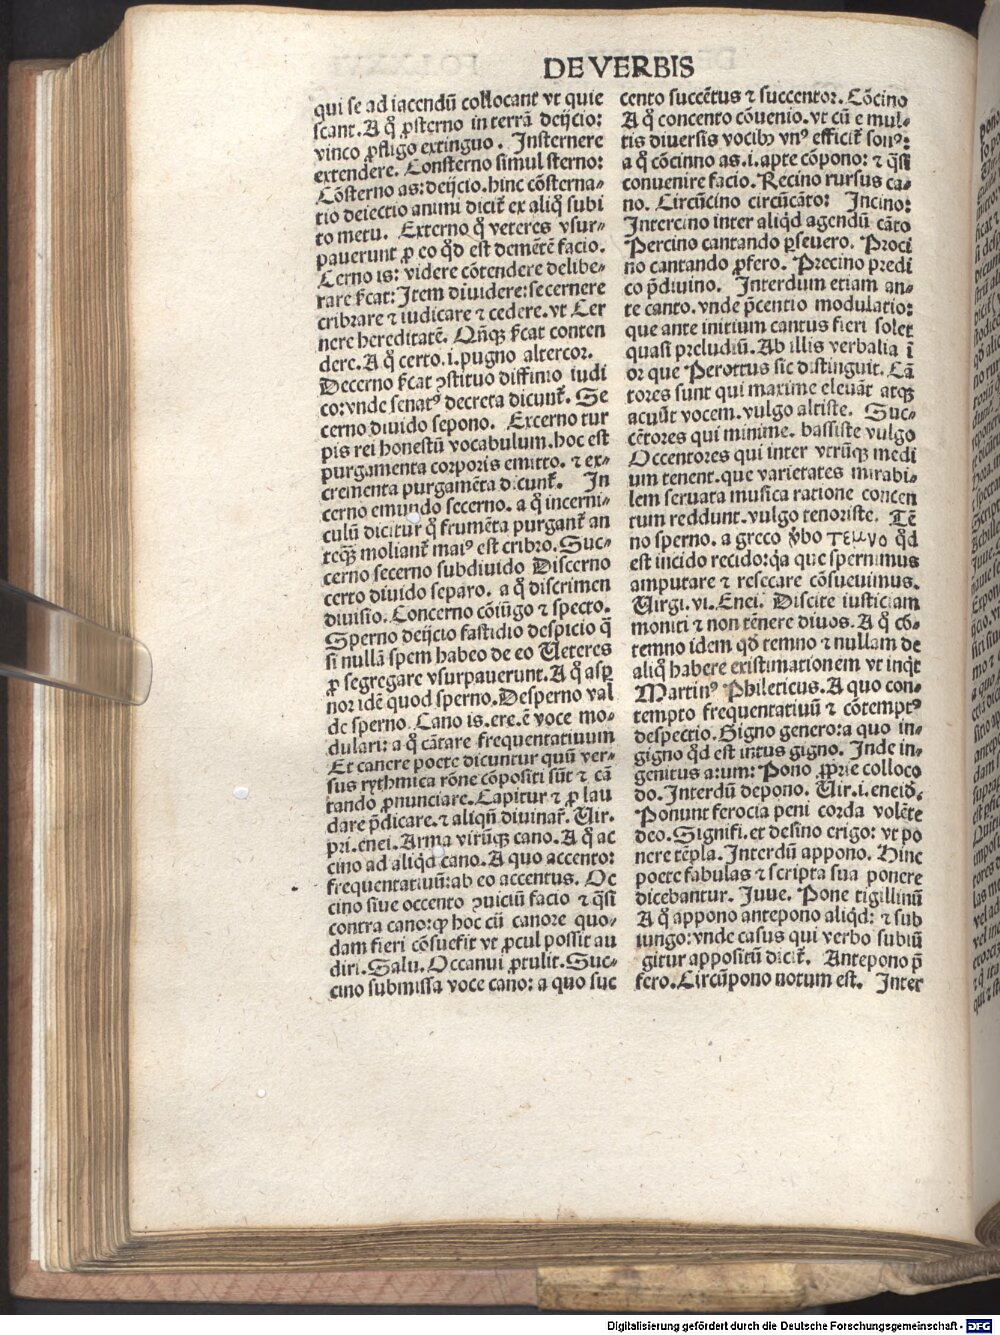 DE VERBIS
qui se ad iacendū collocant vt quie
scant. A q̊ ꝓsterno in terrā deijcio:
vinco ꝓfligo extinguo. Insternere
extendere. Consterno simul sterno:
Cōsterno as: deijcio. hinc cōsterna⸗
tio deiectio animi dicit̄ ex aliq̊ subi
to metu. Externo q̊ veteres vsur⸗
pauerunt ꝓ eo qd̊ est demētē facio.
Cerno is: videre cōtendere delibe⸗
rare ẜcat: Item diuidere: secernere
cribrare ⁊ iudicare ⁊ cedere. vt Cer
nere hereditatē. Qn̄qꝫ ẜcat conten
dere. A q̊ certo. i. pugno altercor.
Decerno ẜcat ꝯstituo diffinio iudi
co: vnde senatꝰ decreta dicunt̄. Se
cerno diuido sepono. Excerno tur
pis rei honestū vocabulum. hoc est
purgamenta corporis emitto. ⁊ ex⸗
crementa purgamēta dicunt̄. In
cerno emundo secerno. a q̊ incerni⸗
culū dicitur q̊ frumēta purgant̄ an
teqꝫ̄ moliant̄ maiꝰ est cribro. Suc⸗
cerno secerno subdiuido Discerno
certo diuido separo. a q̊ discrimen
diuisio. Concerno cōiūgo ⁊ specto.
Sperno deijcio fastidio despicio q̄
si nullā spem habeo de eo Ueteres
ꝓ segregare vsurpauerunt. A q̊ asꝑ
nor idē quod sperno. Desperno val
de sperno. Cano is. ere. ē voce mo⸗
dulari: a q̊ cātare frequentatiuum
Et canere poete dicuntur quū ver⸗
sus rythmica rōne cōpositi sūt ⁊ cā
tando ꝓnunciare. Capitur ⁊ ꝓ lau
dare p̄dicare. ⁊ aliqn̄ diuinat̄. Uir.
pri. enei. Arma virūqꝫ cano. A q̊ ac
cino ad aliqd̊ cano. A quo accento:
frequentatiuū: ab eo accentus. Oc
cino siue occento ꝯuiciū facio ⁊ qs̄i
contra cano: ꝙ hoc cū canore quo⸗
dam fieri cōsueẜit vt ꝓcul possit au
diri. Salu. Occanui ꝓtulit. Suc⸗
cino submissa voce cano: a quo suc
cento succētus ⁊ succentor. Cōcino
A q̊ concento cōuenio. vt cū e mul⸗
tis diuersis vocibꝫ vnꝰ efficit̄ sonꝰ:
a q̊ cōcinno as. i. apte cōpono: ⁊ qs̄i
conuenire facio. Recino rursus ca⸗
no. Circūcino circūcāto: Incino:
Intercino inter aliqd̊ agendū cāto
Percino cantando ꝑseuero. Proci
no cantando ꝓfero. Precino predi
co p̄diuino. Interdum etiam an⸗
te canto. vnde p̄centio modulatio:
que ante initium cantus fieri solet
quasi preludiū. Ab illis verbalia ī
or que Perottus sic distinguit. Cā
tores sunt qui maxime eleuāt atqꝫ
acuūt vocem. vulgo altiste. Suc⸗
cētores qui minime. bassiste vulgo
Occentores qui inter vtrūqꝫ medi
um tenent. que varietates mirabi⸗
lem seruata musica ratione concen
tum reddunt. vulgo tenoriste. Tē
no sperno. a greco v̊bo τεμνο qd̊
est incido recido: qa que spernimus
amputare ⁊ resecare cōsueuimus.
Uirgi. vi. Enei. Discite iusticiam
moniti ⁊ non tēnere diuos. A q̊ cō⸗
temno idem qd̊ temno ⁊ nullam de
aliq̊ habere existimationem vt inqt
Martinꝰ Phileticus. A quo con⸗
tempto frequentatiuū ⁊ cōtemptꝰ
despectio. Gigno genero: a quo in⸗
gigno qd̊ est intus gigno. Inde in⸗
genitus a: um: Pono ꝓprie colloco
do. Interdū depono. Uir. i. eneid̄.
Ponunt ferocia peni corda volēte
deo. Signifi. et desino erigo: vt po
nere tēpla. Interdū appono. Hinc
poete fabulas ⁊ scripta sua ponere
dicebantur. Juue. Pone tigillinū
A q̊ appono antepono aliqd̊: ⁊ sub
iungo: vnde casus qui verbo subiū
gitur appositū dicit̄. Antepono p̄
fero. Circūpono notum est. Inter
Digitalisierung gefördert durch die Deutsche Forschungsgemeinschaft - DFG